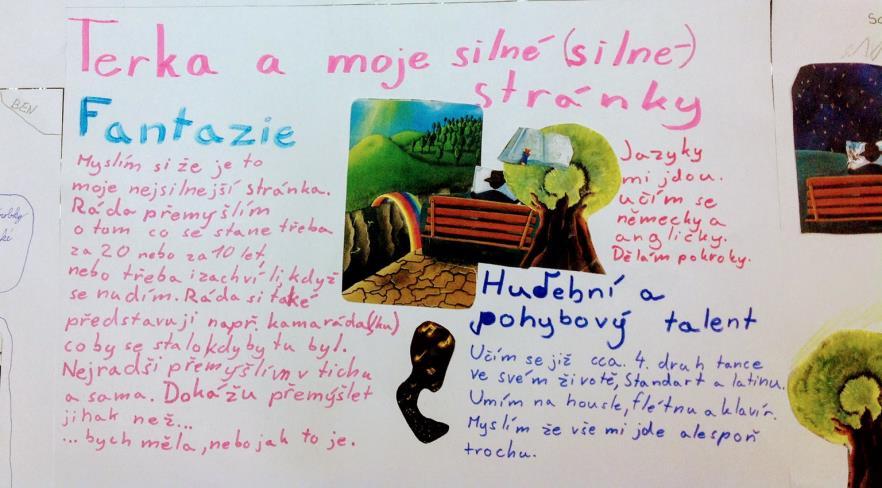 Terka a moje silné (silne-)
stránky
Fantazie
Myslím si že je to
moje nejsilnejší stránka.
Ráda přemyšlím
o tom co se stane třeba
za 20 nebo za 10 let,
nebo třeba i za chvíli, když
se nudím. Ráda si také
představuji např. kamaráda(ku)
co by se stalo kdyby tu byl.
Nejradši přemyšlím v tichu
a sama. Dokážu přemýšlet
jihak než...
...bych měla, nebo jak to je.
Jazyky
mi jdou.
učím se
německy a
anglicky.
Dělám pokroky.
Hudební a
pohybový talent
Učím se již cca. 4. druh tance
ve svém životě, Standart a latinu.
Umím na housle, flétnu a klavír.
Myslím že vše mi jde alespoň
trochu.
BEN